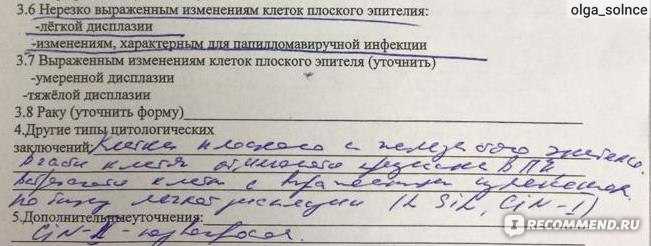 olga_solnce
3.6 Нерезко выраженным изменениям клеток плоского эпителия:
-лёгкой дисплазии
-изменениям, характерным для папилломавиручной инфекции
3.7 Выраженным изменениям клеток плоского эпителя (уточнить)
-умеренной дисплазии
-тяжёлой дисплазии
3.8 Раку (уточнить форму)
4.Другие типы цитологических
заключений: Клетки плоского и железистого эпителия.
В части клеток отмечаются признаки ВПИ
клетки с изменениями
по типу легкой дисплазии (L SiL, CiN-I)
5.Дополнительныеуточнения:
CiN-II - под вопросом.
IRECOMMEND.RU